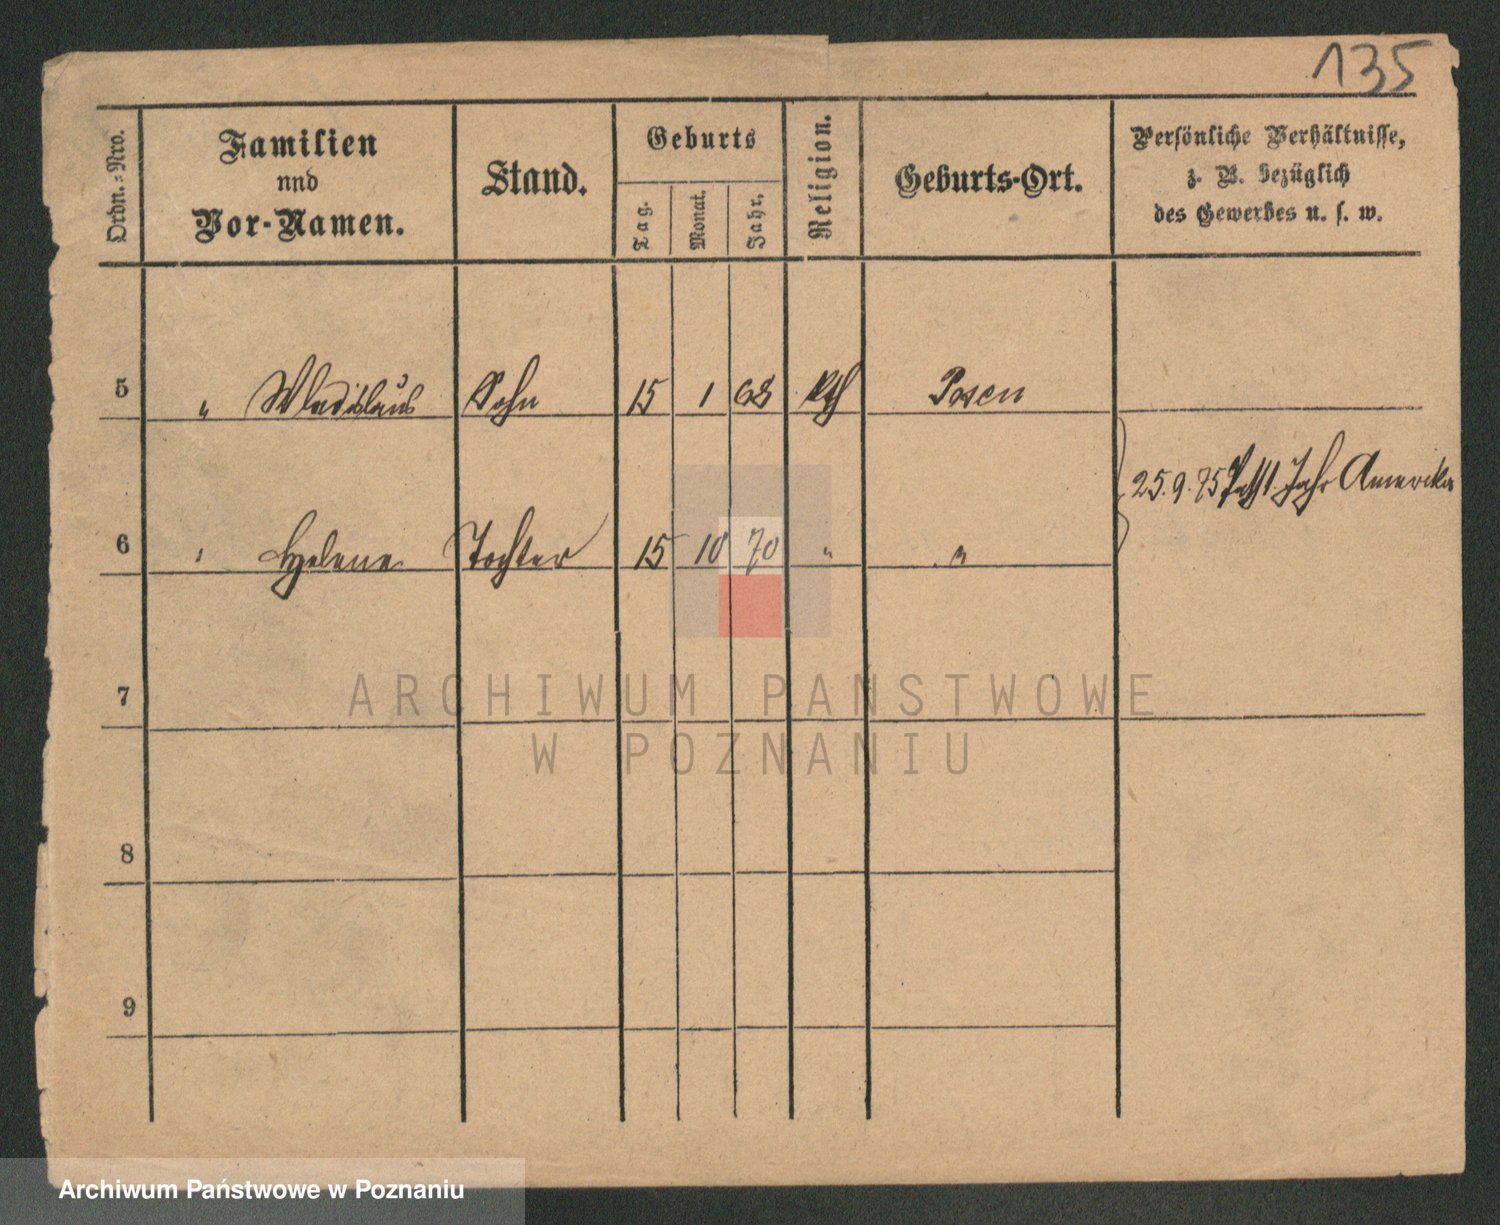 135
Ordn.-Nro.
Familien
und
Vor-Namen.
Stand.
Geburts
Tag.
Monat.
Jahr.
Religion.
Geburts-Ort.
Persönliche Verhältnisse,
z. B. bezüglich
des Gewerbes u. s. w.
5 " Wladislaus Sohn 15 1 68 kth Posen
25.9.75 Paß 1 Jahr Amerika
6 " Helene Tochter 15 10 70 " "
7
ARCHIWUM PAŃSTWOWE
W POZNANIU
8
9
Archiwum Państwowe w Poznaniu